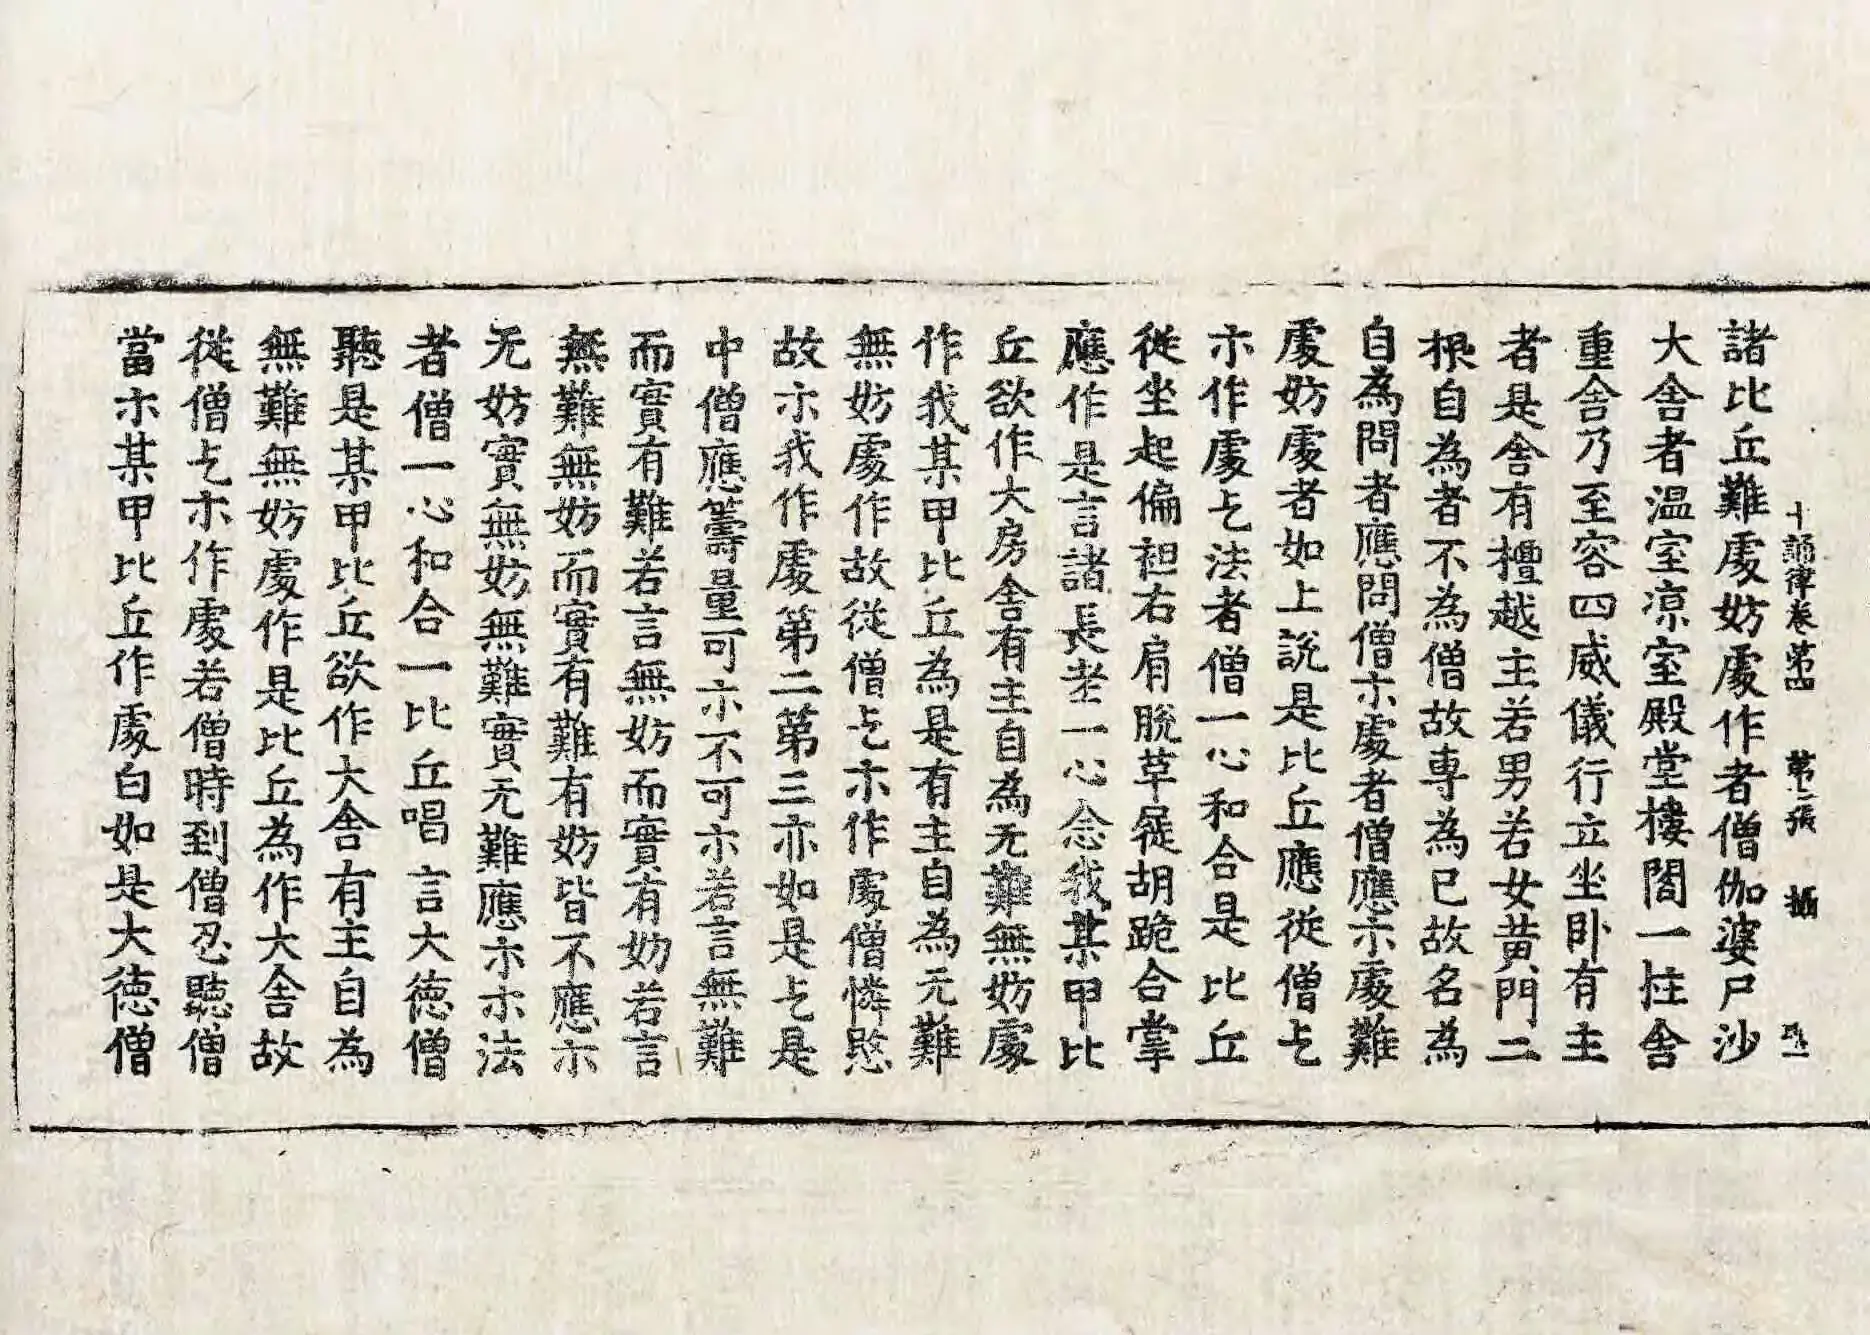 十誦律卷第四 第二張 攝
諸比丘難處妨處作者僧伽婆尸沙
大舍者溫室凉室殿堂樓閣一拄舍
重舍乃至容四威儀行立坐卧有主
者是舍有檀越主若男若女黄門二
根自為者不為僧故專為已故名為
自為問者應問僧示處者僧應示處難
處妨處者如上說是比丘應從僧乞
示作處乞法者僧一心和合是比丘
從坐起偏袒右肩脫草屣胡跪合掌
應作是言諸長老一心念我某甲比
丘欲作大房舍有主自為无難無妨處
作我某甲比丘為是有主自為无難
無妨處作故從僧乞示作處僧憐愍
故示我作處第二第三亦如是乞是
中僧應籌量可示不可示若言無難
而實有難若言無妨而實有妨若言
無難無妨而實有難有妨皆不應示
无妨實無妨無難實无難應示示法
者僧一心和合一比丘唱言大德僧
聽是某甲比丘欲作大舍有主自為
無難無妨處作是比丘為作大舍故
從僧乞示作處若僧時到僧忍聽僧
當示某甲比丘作處白如是大德僧